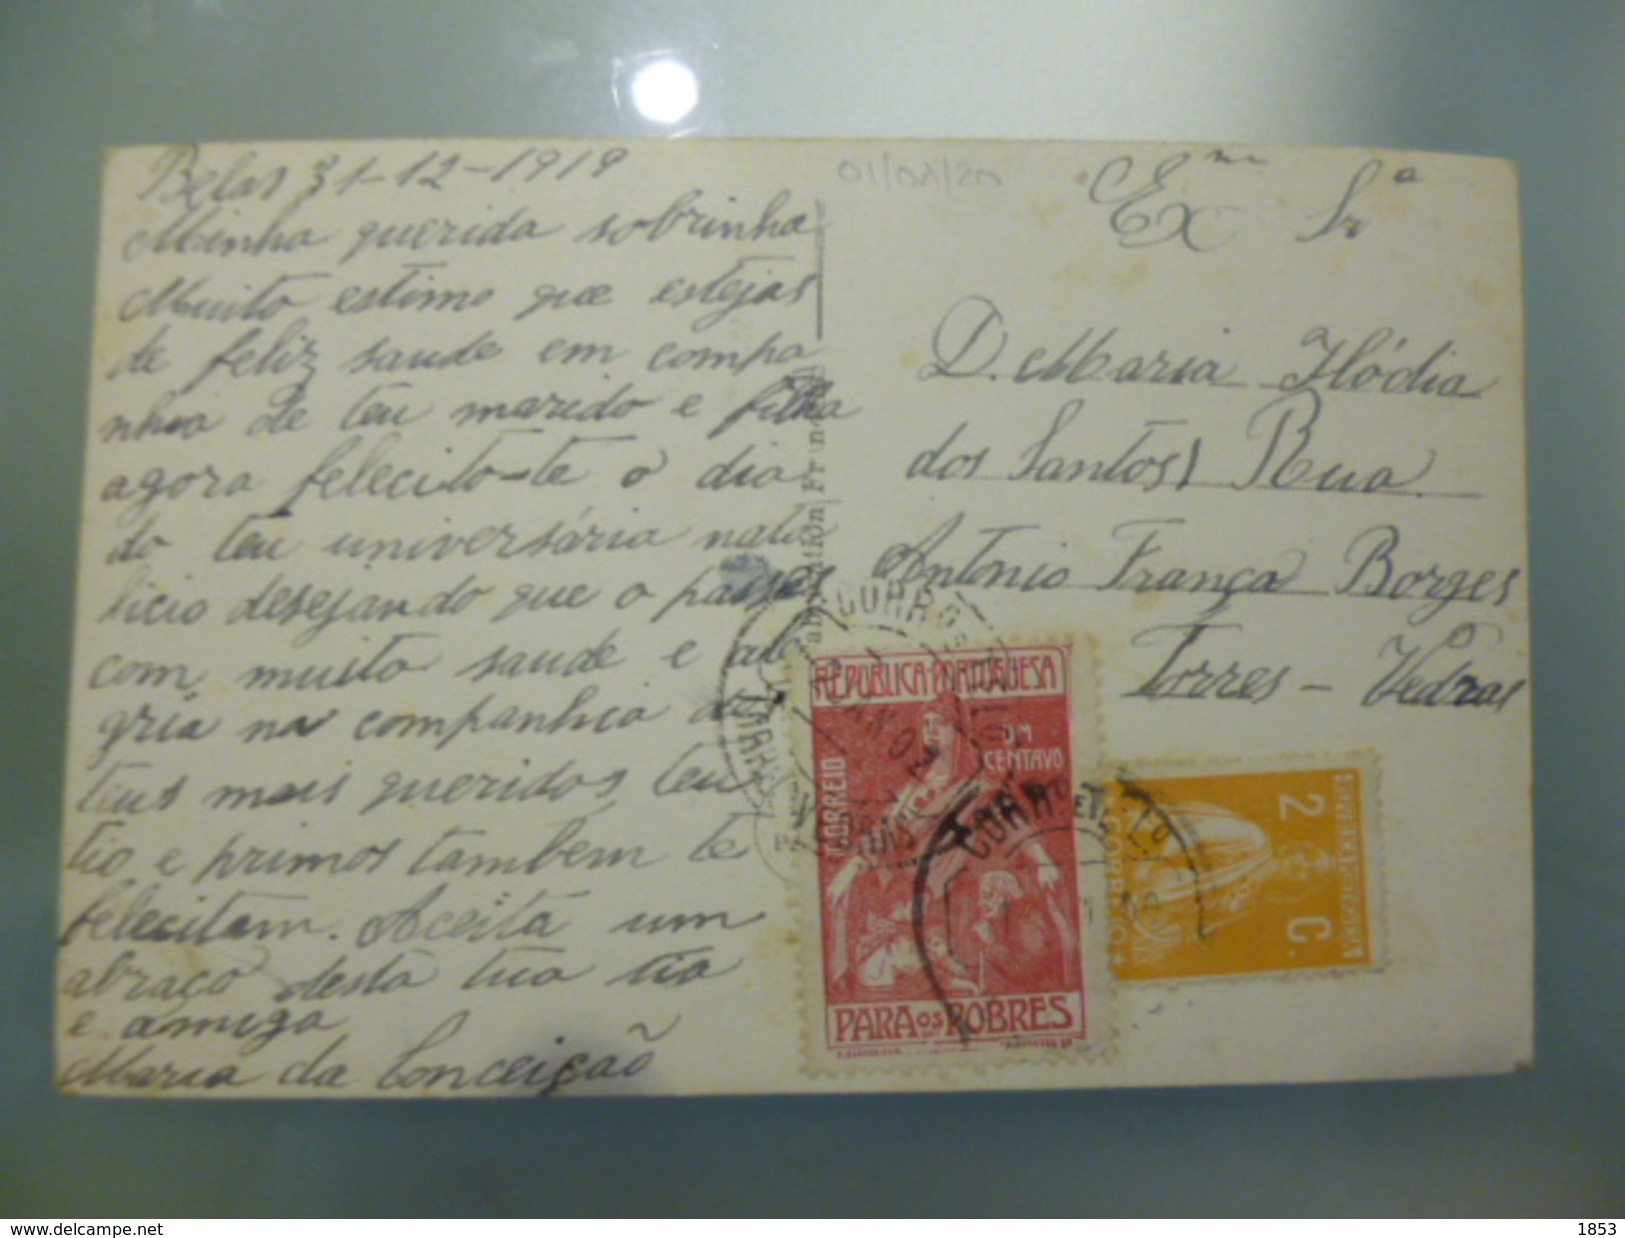 Belas 31-12-1919
Minha querida sobrinha
Muito estimo que estejas
de feliz saude em compa
nhia de teu marido e filha
agora felecito-te o dia
do teu universária nata
licio desejando que o passes
com muita saude e ale
gria na companhia do
teus mais queridos, teu
tio e primos tambem te
felecitam. Aceita um
abraço desta tua tia
e amiga
Maria da Conceição
01/01/20
Exma Sra
D. Maria Ilódia
dos Santos Rua
Antonio França Borges
Torres - Vedras
REPUBLICA PORTUGUESA
UM
CENTAVO
CORREIO
PARA OS POBRES
2 C.
CORREIO
delcampe.net
themart
1853